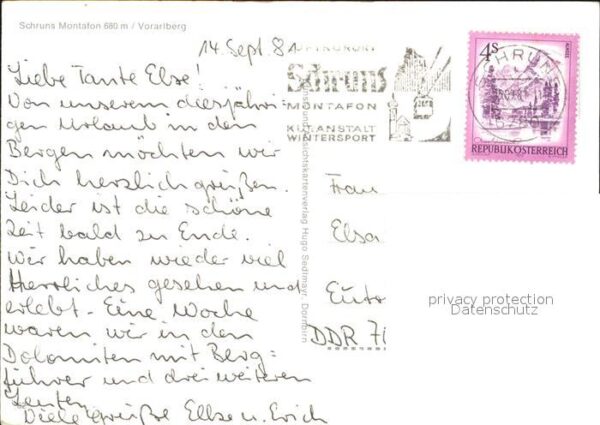 Schruns Montafon 680 m / Vorarlberg
14 Sept. 81
Liebe Tante Else!
Von unserem diesjähri
gen Urlaub in den
Bergen möchten wir
Dich herzlich grüßen.
Leider ist die schöne
Zeit bald zu Ende.
Wir haben wieder viel
Herrliches gesehen und
erlebt. Eine Woche
waren wir in den
Dolomiten mit Berg=
führer und drei weiteren
Leuten
Viele Grüße Ellse u. Erich
LUFTKURORT
Schruns
MONTAFON
KURANSTALT
WINTERSPORT
SCHRUNS
4s
REPUBLIK ÖSTERREICH
Ansichtskartenverlag Hugo Sedlmayr, Dornbirn
Frau
Elsa
Eutr
DDR 70
privacy protection
Datenschutz